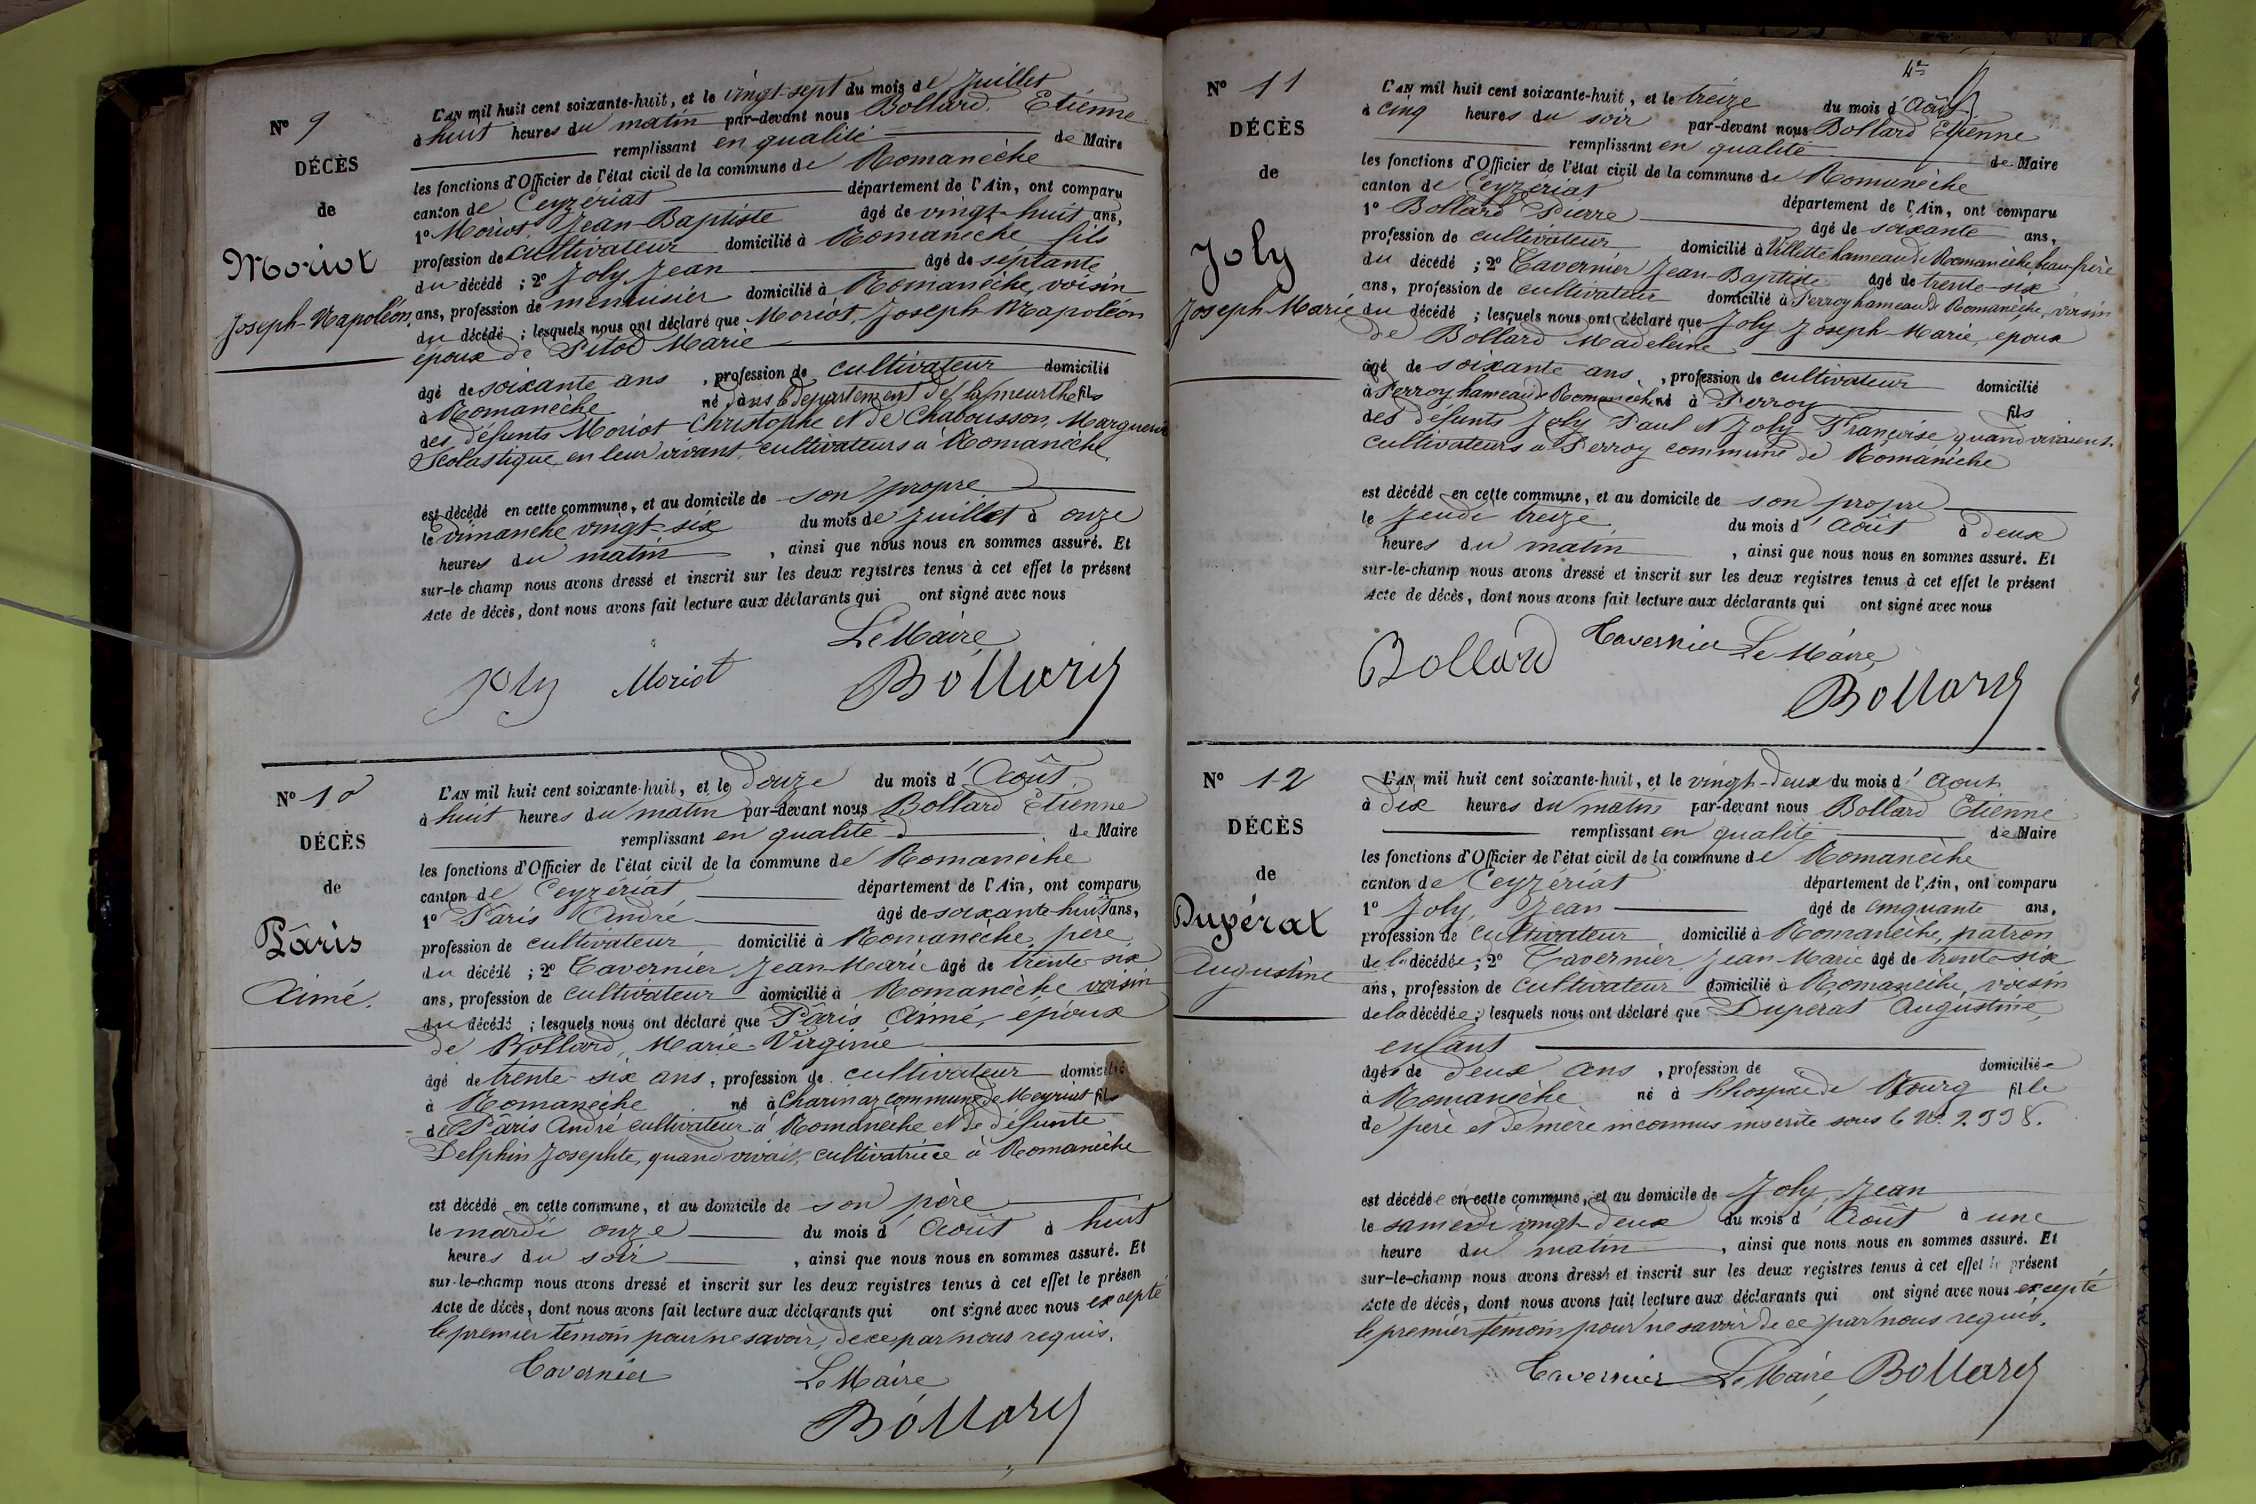 Nº 9
DÉCÈS
de
Moriot
Joseph-Napoléon
L'AN mil huit cent soixante-huit, et le vingt-sept du mois de Juillet
à huit heures du matin par-devant nous Bollard Etienne
remplissant en qualité de Maire
les fonctions d'Officier de l'état civil de la commune de Romanèche
canton de Ceyzériat département de l'Ain, ont comparu
1º Moriot Jean-Baptiste âgé de vingt-huit ans,
profession de cultivateur domicilié à Romanèche fils
du décédé ; 2º Joly Jean âgé de septante
ans, profession de menuisier domicilié à Romanèche, voisin
du décédé ; lesquels nous ont déclaré que Moriot, Joseph Napoléon
époux de Pitod Marie
âgé de soixante ans , profession de cultivateur domicilié
à Romanèche né dans le département de la meurthe fils
des défunts Moriot Christophe et de Chabousson, Marguerite
Scolastique en leur vivant cultivateurs à Romanèche
est décédé en cette commune, et au domicile de son propre
le dimanche vingt-six du mois de Juillet à onze
heures du matin , ainsi que nous nous en sommes assuré. Et
sur-le-champ nous avons dressé et inscrit sur les deux registres tenus à cet effet le présent
Acte de décès, dont nous avons fait lecture aux déclarants qui ont signé avec nous
Le Maire
Joly Moriot Bollard
Nº 10
DÉCÈS
de
Pâris
Aimé.
L'AN mil huit cent soixante-huit, et le douze du mois d'Août
à huit heures du matin par-devant nous Bollard Etienne
remplissant en qualité de Maire
les fonctions d'Officier de l'état civil de la commune de Romanèche
canton de Ceyzériat département de l'Ain, ont comparu
1º Pâris André âgé de soixante-huit ans,
profession de cultivateur domicilié à Romanèche, père
du décédé ; 2º Tavernier Jean-Marie âgé de trente-six
ans, profession de cultivateur domicilié à Romanèche voisin
du décédé ; lesquels nous ont déclaré que Pâris Aimé, époux
de Bollard, Marie-Virginie
âgé de trente-six ans , profession de cultivateur domicilié
à Romanèche né à Charinaz commune de Meyriat fils
de Pâris André cultivateur à Romanèche et de défunte
Delphin Josephte, quand vivait, cultivatrice à Romanèche
est décédé en cette commune, et au domicile de son père
le mardi onze du mois d'Août à huit
heures du soir , ainsi que nous nous en sommes assuré. Et
sur-le-champ nous avons dressé et inscrit sur les deux registres tenus à cet effet le présen
Acte de décès, dont nous avons fait lecture aux déclarants qui ont signé avec nous excepté
le premier témoin pour ne savoir, de ce par nous requis.
Tavernier Le Maire
Bollard
4e
Nº 11
DÉCÈS
de
Joly
Joseph-Marie
L'AN mil huit cent soixante-huit, et le treize du mois d'Août
à cinq heures du soir par-devant nous Bollard Etienne
remplissant en qualité de Maire
les fonctions d'Officier de l'état civil de la commune de Romanèche
canton de Ceyzériat département de l'Ain, ont comparu
1º Bollard Pierre âgé de soixante ans,
profession de cultivateur domicilié à Villette hameau de Romanèche, beau-frère
du décédé ; 2º Tavernier Jean-Baptiste âgé de trente-six
ans, profession de cultivateur domicilié à Perroy hameau de Romanèche, voisin
du décédé ; lesquels nous ont déclaré que Joly Joseph-Marie, époux
de Bollard Madeleine
âgé de soixante ans , profession de cultivateur domicilié
à Perroy hameau de Romanèche né à Perroy fils
des défunts Joly Paul et Joly Françoise, quand vivaient.
cultivateurs à Perroy commune de Romanèche
est décédé en cette commune, et au domicile de son propre
le Jeudi treize du mois d'Août à deux
heures du matin , ainsi que nous nous en sommes assuré. Et
sur-le-champ nous avons dressé et inscrit sur les deux registres tenus à cet effet le présent
Acte de décès, dont nous avons fait lecture aux déclarants qui ont signé avec nous
Bollard Tavernier Le Maire
Bollard
Nº 12
DÉCÈS
de
Dupérat
Augustine
L'AN mil huit cent soixante-huit, et le vingt-deux du mois d'Aout
à dix heures du matin par-devant nous Bollard Etienne
remplissant en qualité de Maire
les fonctions d'Officier de l'état civil de la commune de Romanèche
canton de Ceyzériat département de l'Ain, ont comparu
1º Joly, Jean âgé de cinquante ans,
profession de cultivateur domicilié à Romanèche, patron
de la décédée ; 2º Tavernier Jean-Marie âgé de trente-six
ans, profession de cultivateur domicilié à Romanèche, voisin
de la décédée ; lesquels nous ont déclaré que Duperat Augustine,
enfant
âgée de deux ans , profession de domiciliée
à Romanèche né à l'hospice de Bourg fille
de père et de mère inconnus inscrite sous le No. 2998.
est décédée en cette commune, et au domicile de Joly, Jean
le samedi vingt-deux du mois d'Août à une
heure du matin , ainsi que nous nous en sommes assuré. Et
sur-le-champ nous avons dressé et inscrit sur les deux registres tenus à cet effet le présent
Acte de décès, dont nous avons fait lecture aux déclarants qui ont signé avec nous excepté
le premier témoin pour ne savoir de ce par nous requis.
Tavernier Le Maire Bollard